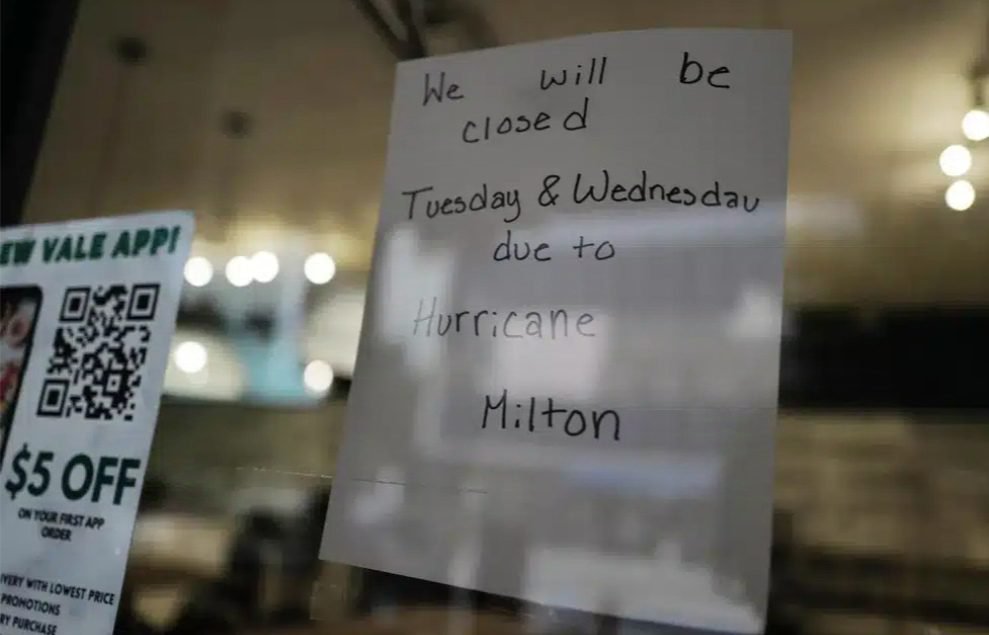 We will be
closed
Tuesday & Wednesday
due to
Hurricane
Milton
EW VALE APP!
$5 OFF
ON YOUR FIRST APP
ORDER
IVERY WITH LOWEST PRICE
PROMOTIONS
RY PURCHASE